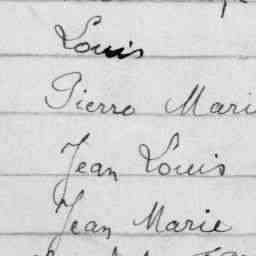 Louis
Pierre Mari
Jean Louis
Jean Marie